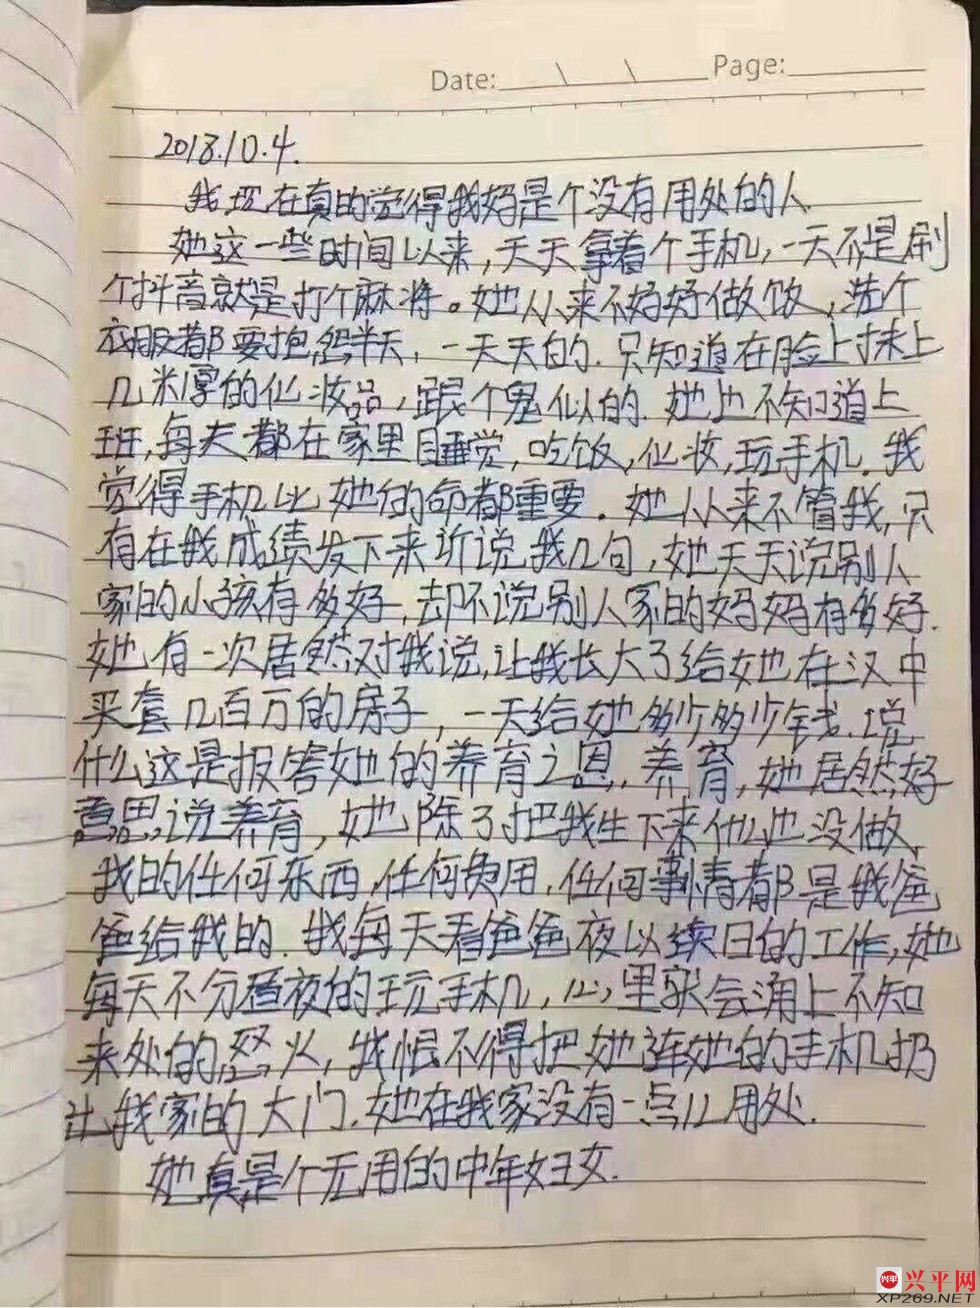 Date: \ \ Page:
2018.10.4.
我现在真的觉得我妈是个没有用处的人
她这一些时间以来，天天拿着个手机，一天不是刷
个抖音就是打个麻将。她从来不好好做饭，洗个
衣服都要抱怨半天，一天天的．只知道在脸上抹上
几米厚的化妆品，跟个鬼似的．她也不知道上
班，每天都在家里睡觉，吃饭，化妆，玩手机．我
觉得手机比她的命都重要。她从来不管我，只
有在我成绩发下来训说我几句，她天天说别人
家的小孩有多好，却不说别人家的妈妈有多好．
她有一次居然对我说，让我长大了给她在汉中
买套几百万的房子，一天给她多少多少钱．说
什么这是报答她的养育之恩，养育，她居然好
意思说养育，她除了把我生下来什么也没做，
我的任何东西，任何费用，任何事情都是我爸
爸给我的．我每天看爸爸夜以续日的工作，她
每天不分昼夜的玩手机，心里就会涌上不知
来处的怒火，我恨不得把她连她的手机扔
出我家的大门．她在我家没有一点儿用处．
她真是个无用的中年妇女．
兴平 兴平网
XP269.NET